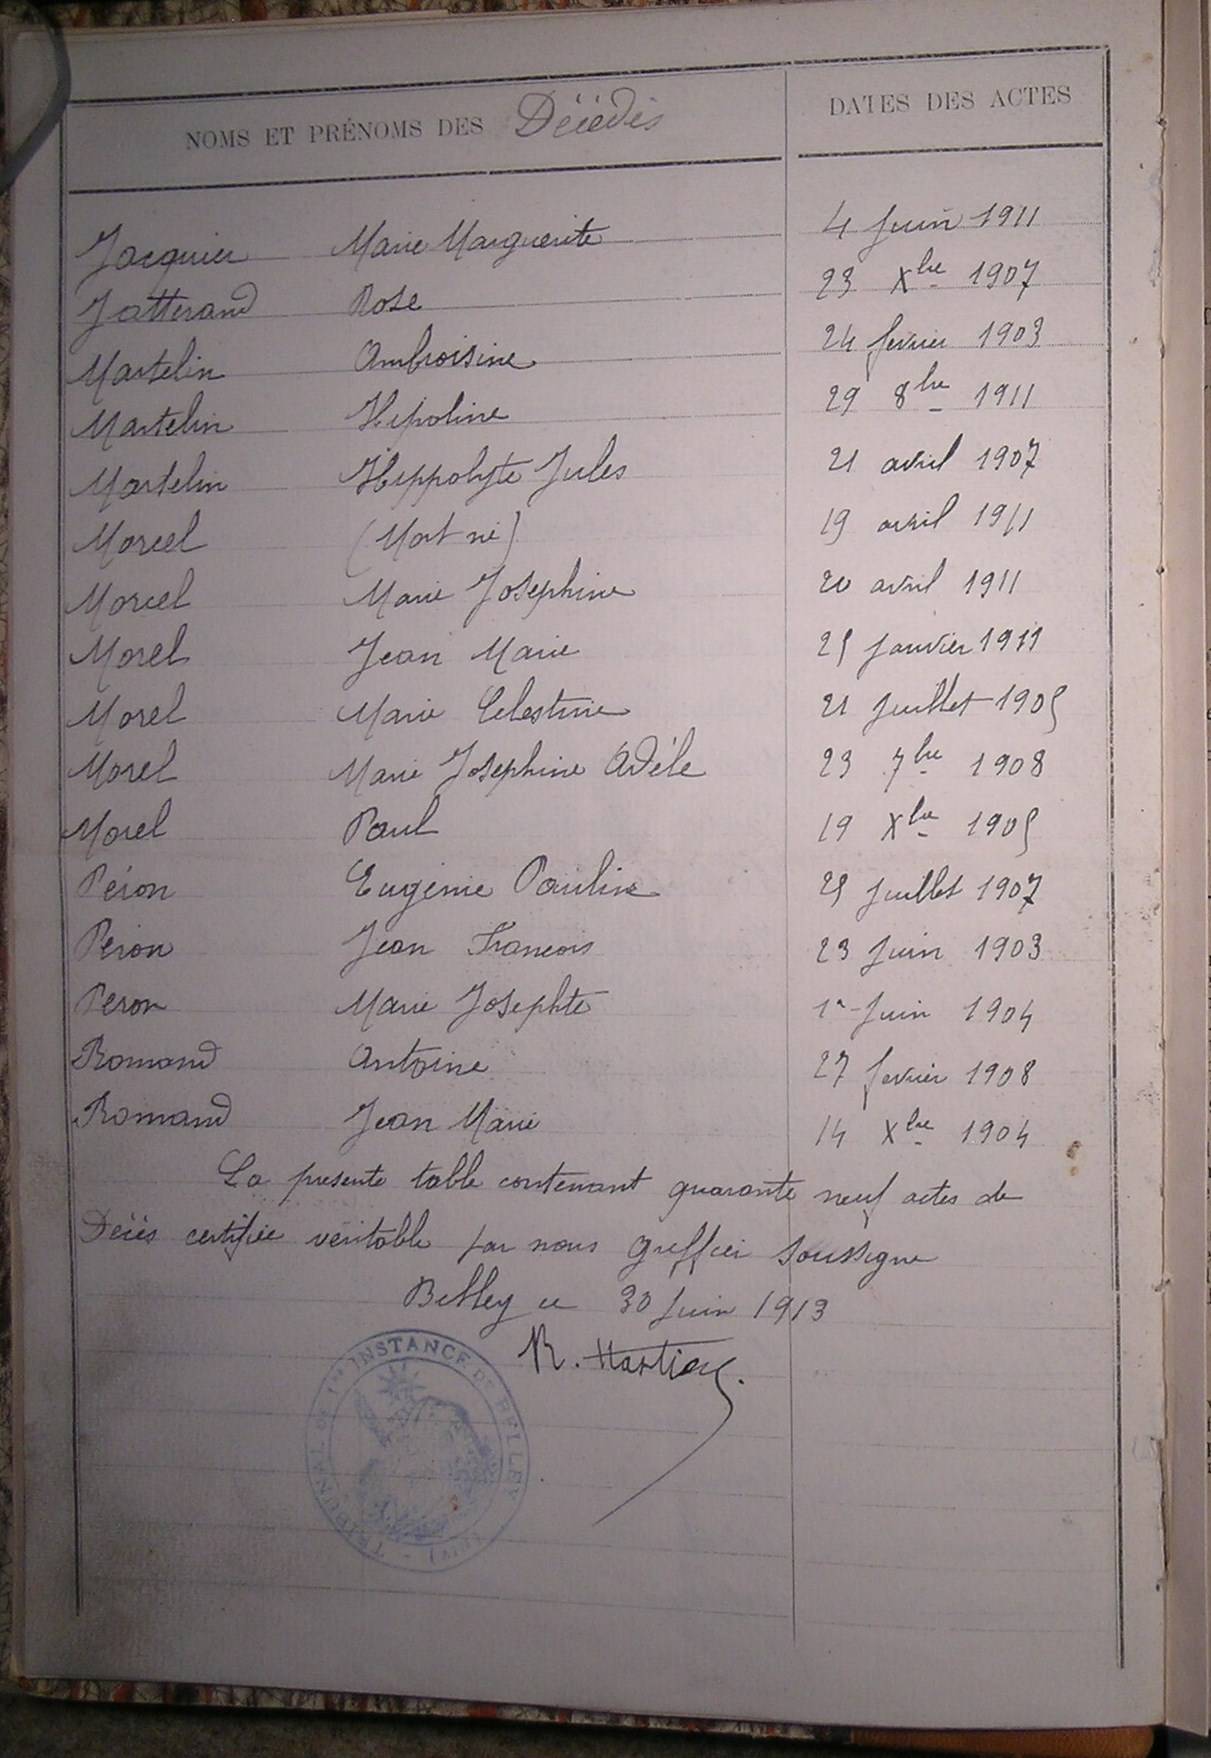 NOMS ET PRÉNOMS DES Décédés DATES DES ACTES
Jacquier Marie Marguerite 4 Juin 1911
Jatterand Rose 23 Xbre 1907
Martelin Ambroisine 24 fevrier 1903
Martelin Hipoline 29 8bre 1911
Martelin Hippolyte Jules 21 avril 1907
Morcel (Mort né) 19 avril 1911
Morcel Marie Josephine 20 avril 1911
Morel Jean Marie 25 Janvier 1911
Morel Marie Celestine 21 Juillet 1905
Morel Marie Josephine Adèle 23 7bre 1908
Morel Paul 19 Xbre 1905
Péron Eugénie Pauline 25 Juillet 1907
Péron Jean Francois 23 Juin 1903
Peron Marie Josephte 1er Juin 1904
Romand Antoine 27 fevrier 1908
Romand Jean Marie 14 Xbre 1904
La presente table contenant quarante neuf actes de
Décès certifiée véritable par nous Greffier soussigné
Belley le 30 Juin 1913
TRIBUNAL DE 1RE INSTANCE DE BELLEY (AIN)